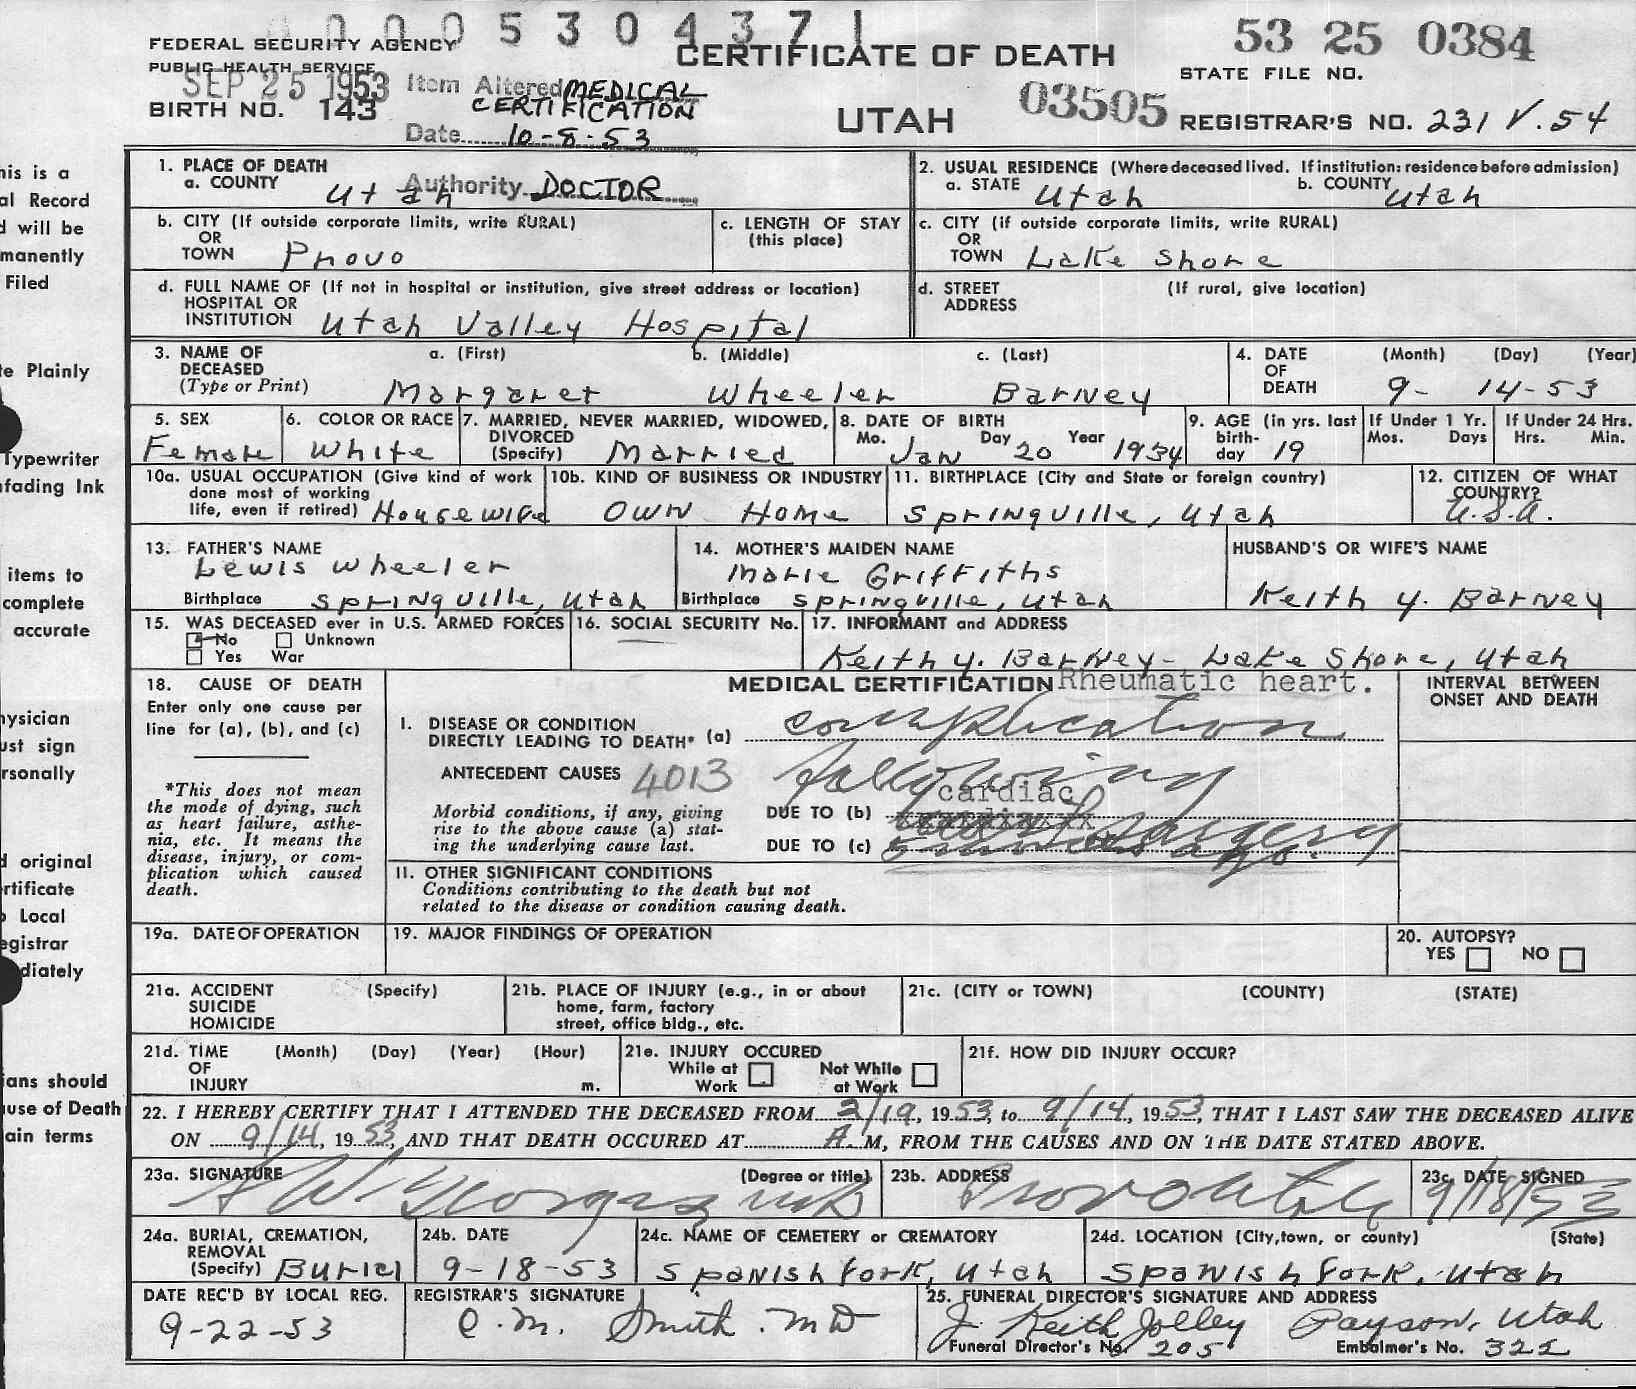 0 0 0 5 3 0 4 3 7 1
FEDERAL SECURITY AGENCY
PUBLIC HEALTH SERVICE
SEP 25 1953
BIRTH NO. 143
Item Altered MEDICAL CERTIFICATION
Date 10-8-53
Authority DOCTOR
CERTIFICATE OF DEATH
UTAH
03505
53 25 0384
STATE FILE NO.
REGISTRAR'S NO. 231 V. 54
his is a
al Record
d will be
manently
Filed
te Plainly
Typewriter
nfading Ink
items to
complete
accurate
hysician
ust sign
rsonally
d original
rtificate
o Local
egistrar
diately
ians should
use of Death
ain terms
1. PLACE OF DEATH
a. COUNTY Utah
2. USUAL RESIDENCE (Where deceased lived. If institution: residence before admission)
a. STATE Utah b. COUNTY Utah
b. CITY (If outside corporate limits, write RURAL)
OR
TOWN Provo
c. LENGTH OF STAY
(this place)
c. CITY (if outside corporate limits, write RURAL)
OR
TOWN Lake Shore
d. FULL NAME OF (If not in hospital or institution, give street address or location)
HOSPITAL OR
INSTITUTION Utah Valley Hospital
d. STREET (If rural, give location)
ADDRESS
3. NAME OF DECEASED (Type or Print)
a. (First) b. (Middle) c. (Last)
Margaret Wheeler Barney
4. DATE OF DEATH (Month) (Day) (Year)
9- 14-53
5. SEX
Female
6. COLOR OR RACE
White
7. MARRIED, NEVER MARRIED, WIDOWED,
DIVORCED
(Specify) Married
8. DATE OF BIRTH
Mo. Jan Day 20 Year 1934
9. AGE (in yrs. last birth-day 19
If Under 1 Yr.
Mos. Days
If Under 24 Hrs.
Hrs. Min.
10a. USUAL OCCUPATION (Give kind of work
done most of working
life, even if retired) Housewife
10b. KIND OF BUSINESS OR INDUSTRY
OWN Home
11. BIRTHPLACE (City and State or foreign country)
Springville, Utah
12. CITIZEN OF WHAT
COUNTRY?
U.S.A.
13. FATHER'S NAME
Lewis Wheeler
Birthplace Springville, Utah
14. MOTHER'S MAIDEN NAME
Marie Griffiths
Birthplace Springville, Utah
HUSBAND'S OR WIFE'S NAME
Keith Y. Barney
15. WAS DECEASED ever in U.S. ARMED FORCES
No Unknown
Yes War
16. SOCIAL SECURITY No.
17. INFORMANT and ADDRESS
Keith Y. Barney - Lake Shore, Utah
18. CAUSE OF DEATH
Enter only one cause per
line for (a), (b), and (c)
*This does not mean
the mode of dying, such
as heart failure, asthe-
nia, etc. It means the
disease, injury, or com-
plication which caused
death.
MEDICAL CERTIFICATION Rheumatic heart.
INTERVAL BETWEEN
ONSET AND DEATH
I. DISEASE OR CONDITION
DIRECTLY LEADING TO DEATH* (a) complication
ANTECEDENT CAUSES 4013 following
cardiac
Morbid conditions, if any, giving
rise to the above cause (a) stat-
ing the underlying cause last.
DUE TO (b) surgery
DUE TO (c)
II. OTHER SIGNIFICANT CONDITIONS
Conditions contributing to the death but not
related to the disease or condition causing death.
19a. DATE OF OPERATION
19. MAJOR FINDINGS OF OPERATION
20. AUTOPSY?
YES NO
21a. ACCIDENT (Specify)
SUICIDE
HOMICIDE
21b. PLACE OF INJURY (e.g., in or about
home, farm, factory
street, office bldg., etc.
21c. (CITY or TOWN) (COUNTY) (STATE)
21d. TIME (Month) (Day) (Year) (Hour)
OF
INJURY m.
21e. INJURY OCCURED
While at Work Not While at Work
21f. HOW DID INJURY OCCUR?
22. I HEREBY CERTIFY THAT I ATTENDED THE DECEASED FROM 2/19, 1953, to 9/14, 1953, THAT I LAST SAW THE DECEASED ALIVE
ON 9/14, 1953, AND THAT DEATH OCCURED AT A. M, FROM THE CAUSES AND ON THE DATE STATED ABOVE.
23a. SIGNATURE (Degree or title)
23b. ADDRESS
Provo Utah
23c. DATE SIGNED
9/18/53
24a. BURIAL, CREMATION,
REMOVAL
(Specify) Burial
24b. DATE
9-18-53
24c. NAME OF CEMETERY or CREMATORY
Spanish Fork, Utah
24d. LOCATION (City, town, or county) (State)
Spanish Fork, Utah
DATE REC'D BY LOCAL REG.
9-22-53
REGISTRAR'S SIGNATURE
C. M. Smith. MD
25. FUNERAL DIRECTOR'S SIGNATURE AND ADDRESS
J. Keith Jolley Payson, Utah
Funeral Director's No. 205 Embalmer's No. 322